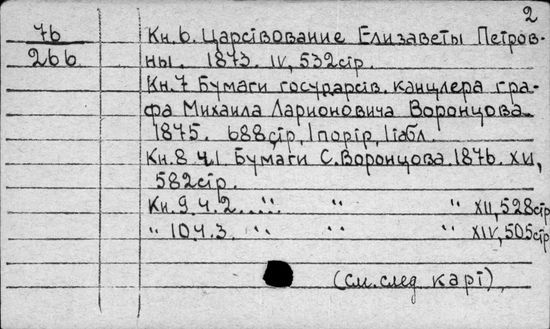 2
76 Кн.6. Царствование Елизаветы Петров-
266 ны. 1873. IV, 532стр.
Кн.7 Бумаги государств. канцлера гра-
фа Михаила Ларионовича Воронцова
1875. 688стр, 1портр, 1табл.
Кн.8 ч.1. Бумаги С.Воронцова. 1876. XII,
582стр.
Кн.9.ч.2. .... " " " XII, 528стр
" 10.ч.3. " " " XIV, 505стр
(см. след. карт),